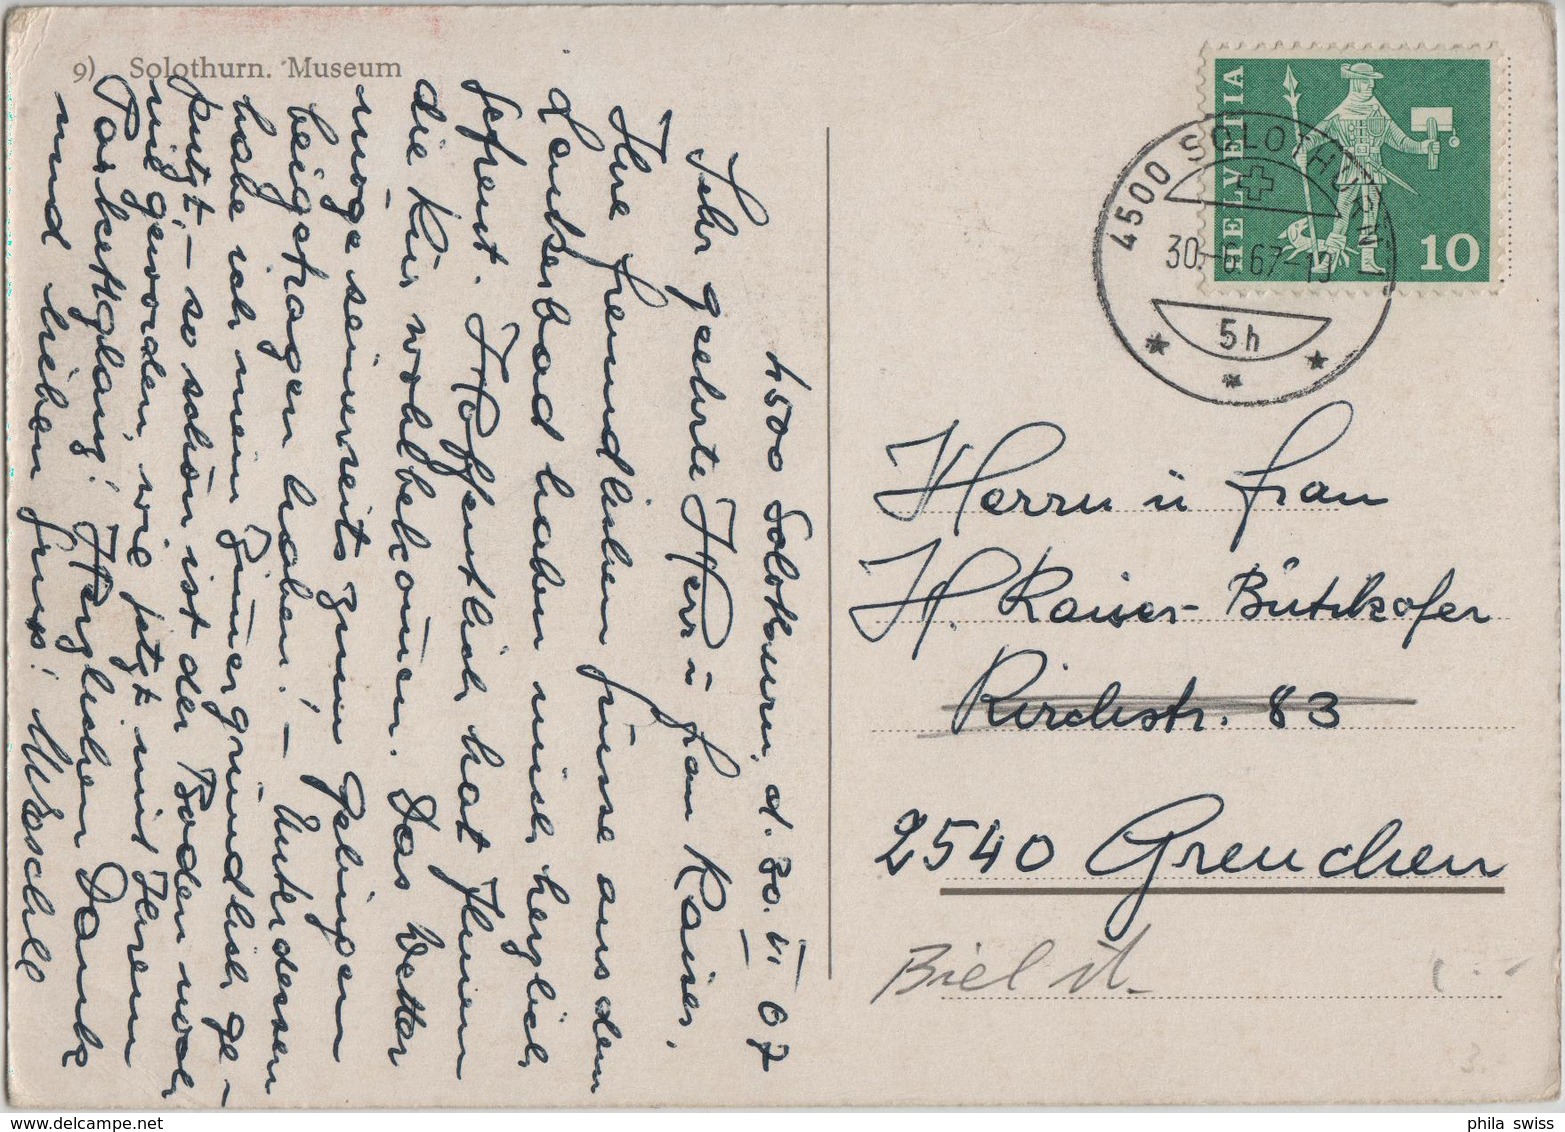 9) Solothurn. Museum
4500 Solothurn, d. 30. VI 67
Sehr geehrte Herr u frau Kaiser,
Ihre freundlichen Grüsse aus dem
Leukerbad haben mich herzlich
gefreut. Hoffentlich hat Ihnen
die Kur wohlbekom̄en. Das Wetter
möge seinerseits zum Gelingen
beigetragen haben! – Unterdessen
habe ich mein Zim̄er gründlich ge-
putzt, – so schön ist der Boden noch
nie geworden, wie jetzt mit Ihrem
Parkettglanz! Herzlichen Dank
und lieben Gruss!
HELVETIA
10
4500 SOLOTHURN 1
30.-6.67-19
5h
Herrn u frau
H. Kaiser-Bützkofer
Kirchstr. 83
2540 Grenchen
Biel
3.-
phila swiss